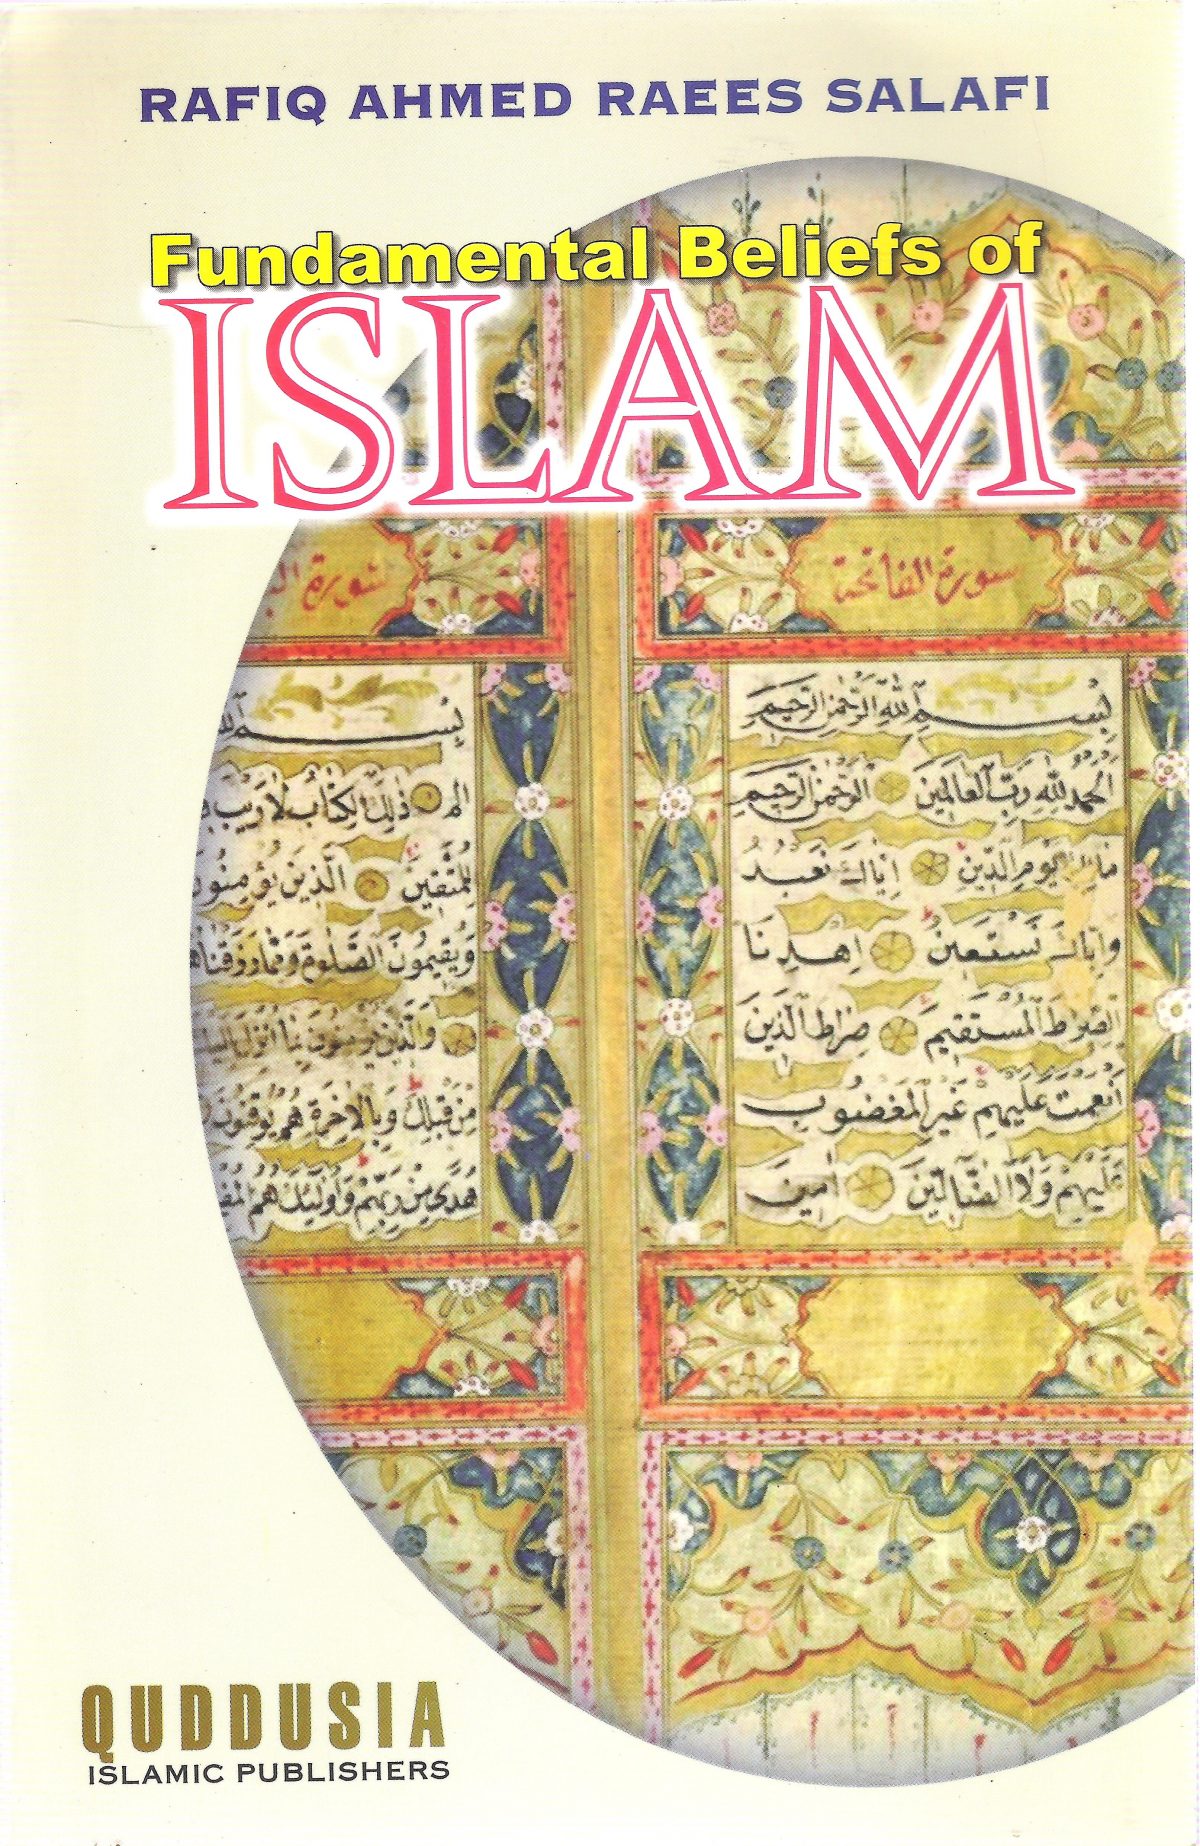 RAFIQ AHMED RAEES SALAFI
Fundamental Beliefs of
ISLAM
سورة الفاتحة
بِسْمِ اللّٰهِ الرَّحْمٰنِ الرَّحِيمِ
اَلْحَمْدُ لِلّٰهِ رَبِّ الْعَالَمِينَ الرَّحْمٰنِ الرَّحِيمِ
مَالِكِ يَوْمِ الدِّينِ اِيَّاكَ نَعْبُدُ
وَاِيَّاكَ نَسْتَعِينُ اِهْدِنَا
الصِّرَاطَ الْمُسْتَقِيمَ صِرَاطَ الَّذِينَ
اَنْعَمْتَ عَلَيْهِمْ غَيْرِ الْمَغْضُوبِ
عَلَيْهِمْ وَلَا الضَّالِّينَ اٰمين
سورة
بِسْمِ
الم ذٰلِكَ الْكِتَابُ لَا رَيْبَ
لِلْمُتَّقِينَ الَّذِينَ يُؤْمِنُونَ
وَيُقِيمُونَ الصَّلٰوةَ وَمِمَّا رَزَقْنَاهُمْ
وَالَّذِينَ يُؤْمِنُونَ بِمَا اُنْزِلَ اِلَيْكَ
مِنْ قَبْلِكَ وَبِالْاٰخِرَةِ هُمْ يُوقِنُونَ
هُدًى مِنْ رَبِّهِمْ وَاُولٰئِكَ هُمُ
QUDDUSIA
ISLAMIC PUBLISHERS